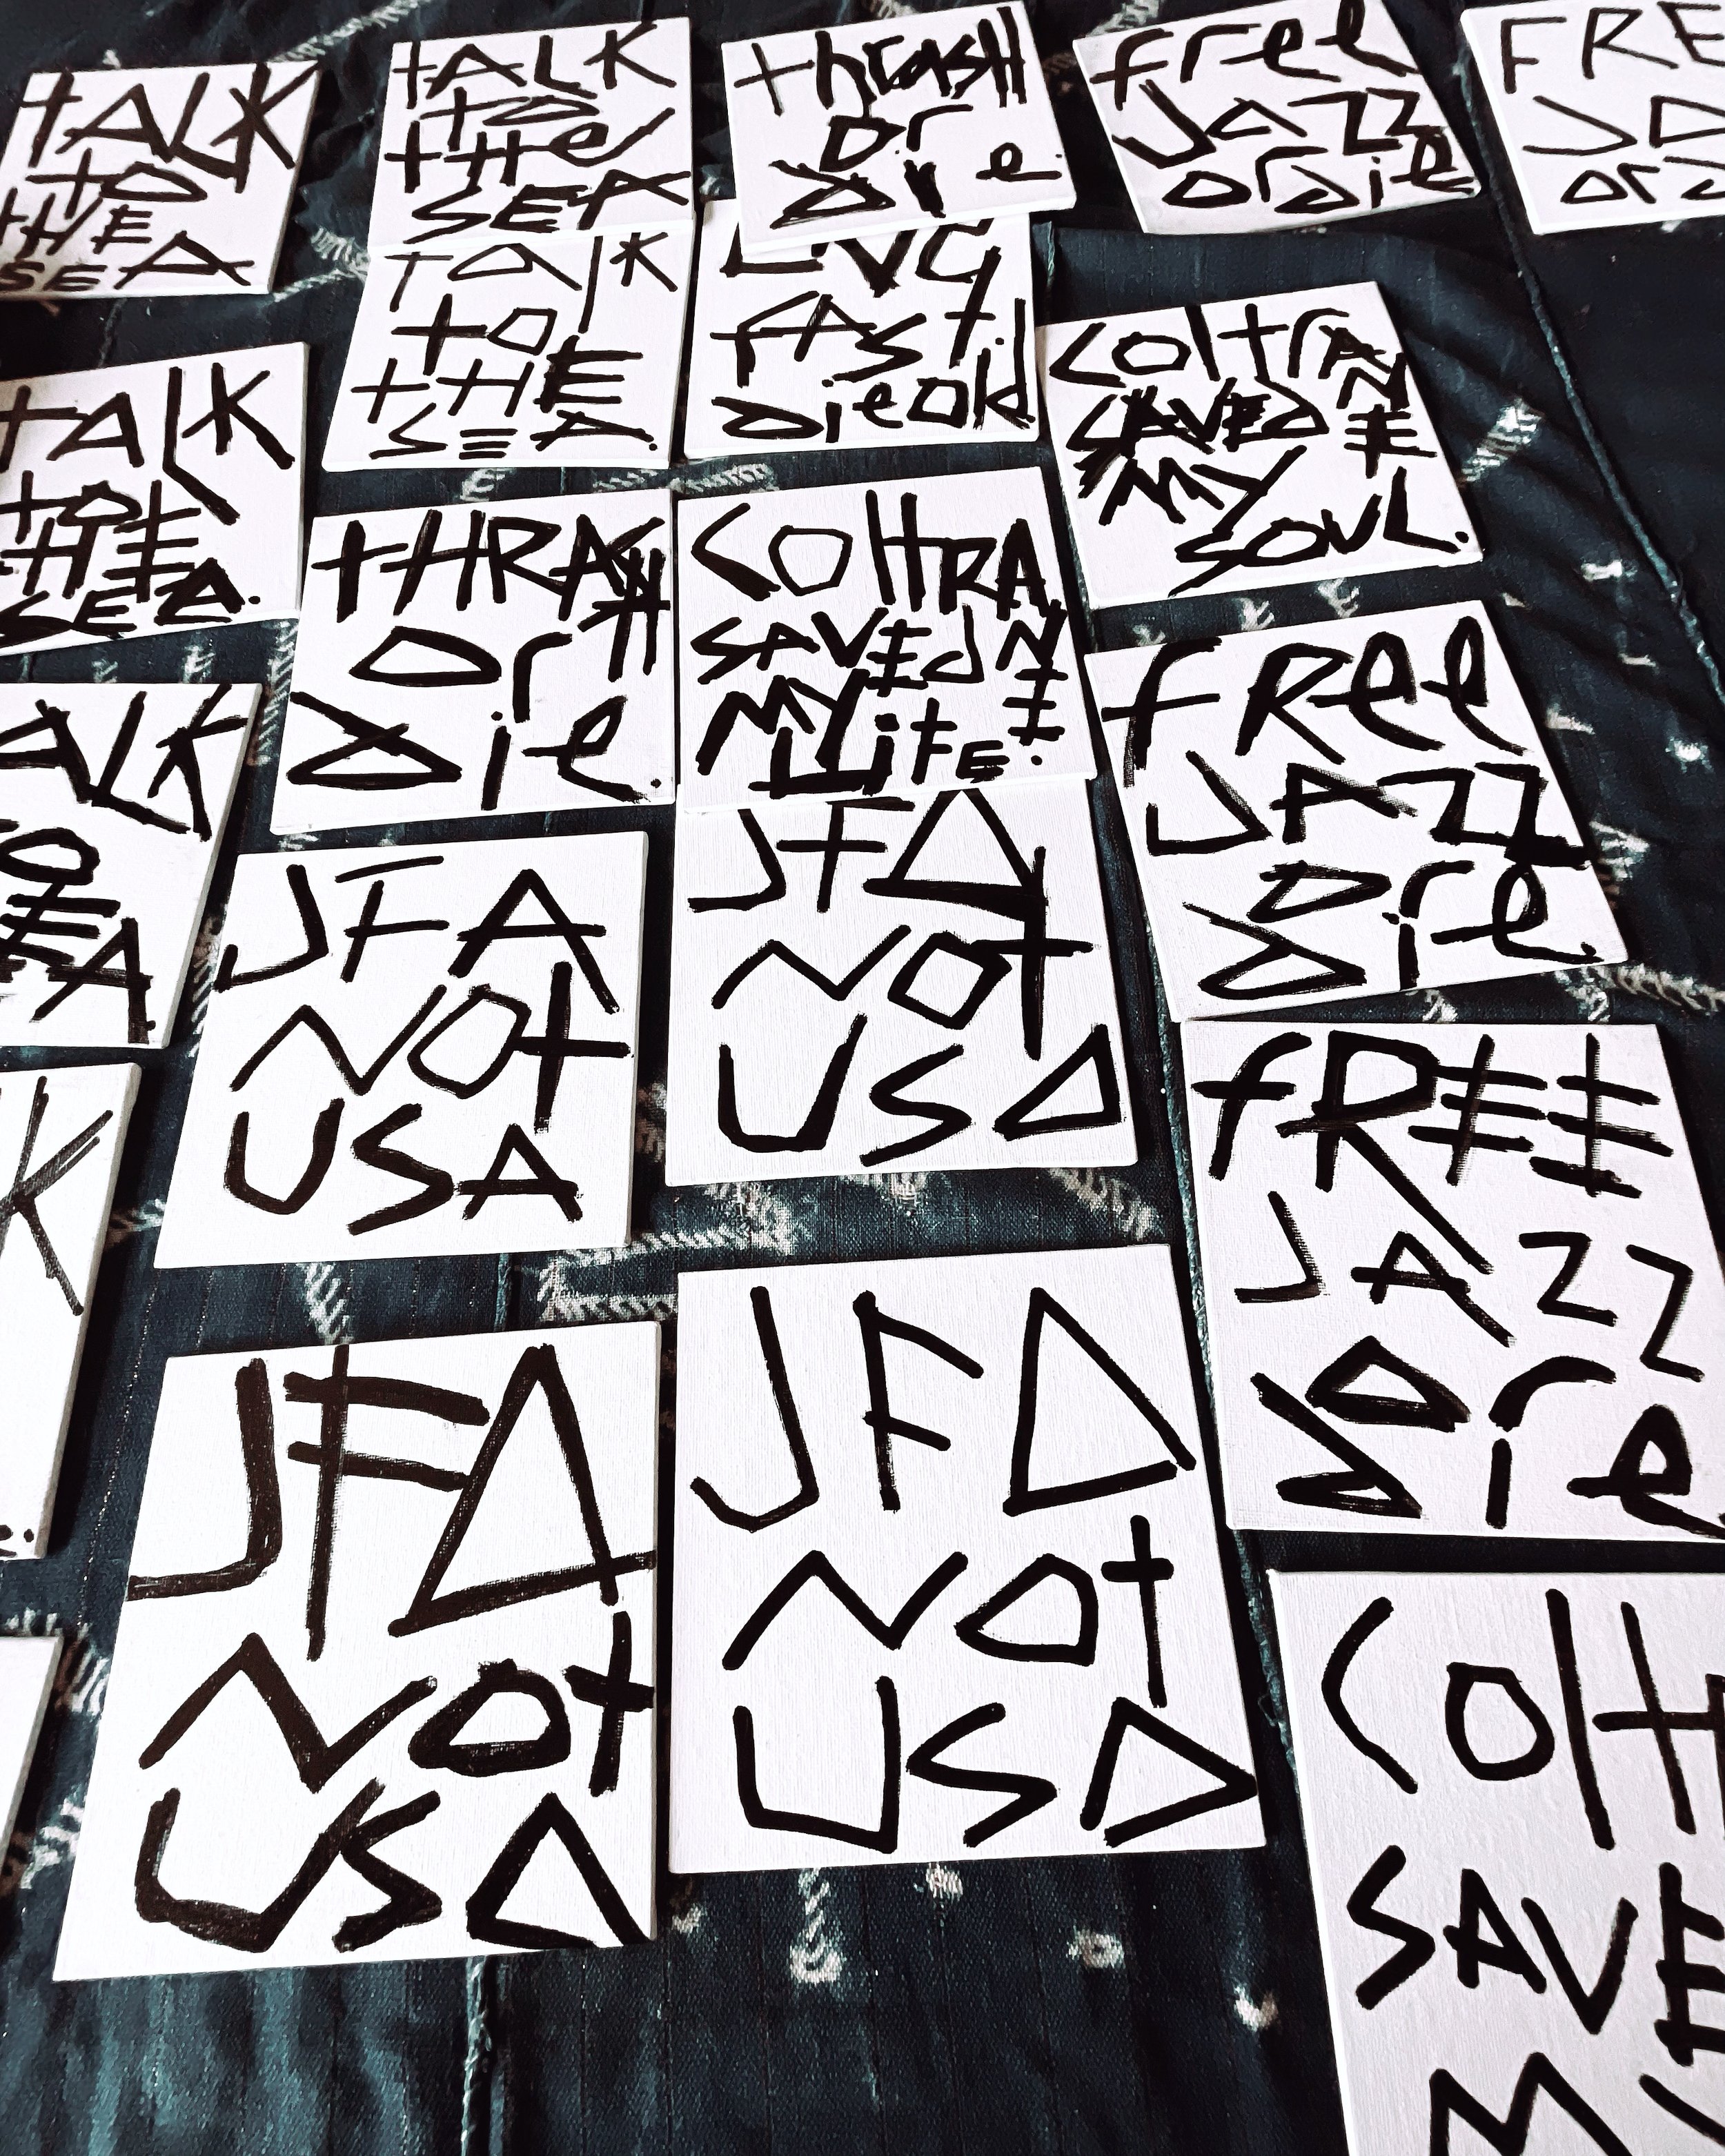 tALK
to
tHE
SEA
tALK
to
tHe
SEA
thrasH
or
die.
free
JAZZ
or die
FRE
JA
or d
TAlK
to
tHE
SEA.
LIVE
fASt.
die old.
ColtrANE
SAVED
MY
SOUL.
tALK
to
tHE
SEA.
tHRASH
or
die.
COltRANE
SAVEd
MY
Life.
fRee
JAZZ
or
die.
ALK
O
HE
EA.
JFA
NOt
USA
JFA
NOt
USA
fREE
JAZZ
or
die
K
JFA
NOt
USA
JFA
NOt
USA
COlt
SAVE
MY